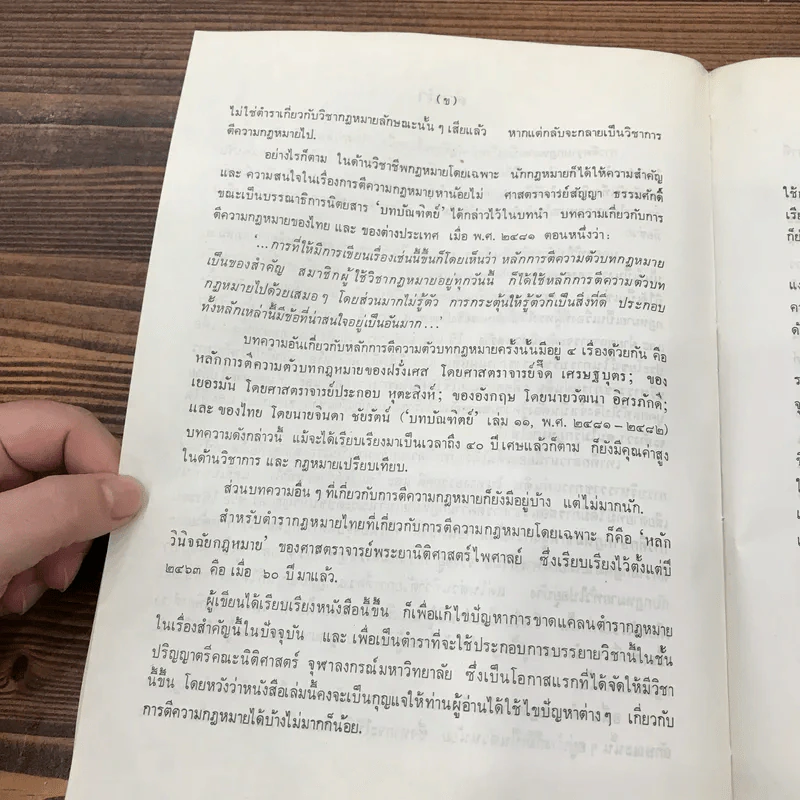 (ข)
ไม่ใช่ตำราเกี่ยวกับวิชากฎหมายลักษณะนั้น ๆ เสียแล้ว หากแต่กลับจะกลายเป็นวิชาการ
ตีความกฎหมายไป.
อย่างไรก็ตาม ในด้านวิชาชีพกฎหมายโดยเฉพาะ นักกฎหมายก็ได้ให้ความสำคัญ
และ ความสนใจในเรื่องการตีความกฎหมายหาน้อยไม่ ศาสตราจารย์สัญญา ธรรมศักดิ์
ขณะเป็นบรรณาธิการนิตยสาร ‘บทบัณฑิตย์’ ได้กล่าวไว้ในบทนำ บทความเกี่ยวกับการ
ตีความกฎหมายของไทย และ ของต่างประเทศ เมื่อ พ.ศ. ๒๔๘๑ ตอนหนึ่งว่า:
‘...การที่ให้มีการเขียนเรื่องเช่นนี้ขึ้นก็โดยเห็นว่า หลักการตีความตัวบทกฎหมาย
เป็นของสำคัญ สมาชิกผู้ใช้วิชากฎหมายอยู่ทุกวันนี้ ก็ได้ใช้หลักการตีความตัวบท
กฎหมายไปด้วยเสมอ ๆ โดยส่วนมากไม่รู้ตัว การกระตุ้นให้รู้ตัวก็เป็นสิ่งที่ดี ประกอบ
ทั้งหลักเหล่านี้มีข้อที่น่าสนใจอยู่เป็นอันมาก...’
บทความอันเกี่ยวกับหลักการตีความตัวบทกฎหมายครั้งนั้นมีอยู่ ๔ เรื่องด้วยกัน คือ
หลักการตีความตัวบทกฎหมายของฝรั่งเศส โดยศาสตราจารย์จี๊ด เศรษฐบุตร; ของ
เยอรมัน โดยศาสตราจารย์ประกอบ หุตะสิงห์; ของอังกฤษ โดยนายวัฒนา อิศรภักดี;
และ ของไทย โดยนายจินดา ชัยรัตน์ (‘บทบัณฑิตย์’ เล่ม ๑๑, พ.ศ. ๒๔๘๑–๒๔๘๒)
บทความดังกล่าวนี้ แม้จะได้เรียบเรียงมาเป็นเวลาถึง ๔๐ ปีเศษแล้วก็ตาม ก็ยังมีคุณค่าสูง
ในด้านวิชาการ และ กฎหมายเปรียบเทียบ.
ส่วนบทความอื่น ๆ ที่เกี่ยวกับการตีความกฎหมายก็ยังมีอยู่บ้าง แต่ไม่มากนัก.
สำหรับตำรากฎหมายไทยที่เกี่ยวกับการตีความกฎหมายโดยเฉพาะ ก็คือ ‘หลัก
วินิจฉัยกฎหมาย’ ของศาสตราจารย์พระยานิติศาสตร์ไพศาลย์ ซึ่งเรียบเรียงไว้ตั้งแต่ปี
๒๔๖๓ คือ เมื่อ ๖๐ ปีมาแล้ว.
ผู้เขียนได้เรียบเรียงหนังสือนี้ขึ้น ก็เพื่อแก้ไขปัญหาการขาดแคลนตำรากฎหมาย
ในเรื่องสำคัญนี้ในปัจจุบัน และ เพื่อเป็นตำราที่จะใช้ประกอบการบรรยายวิชานี้ในชั้น
ปริญญาตรีคณะนิติศาสตร์ จุฬาลงกรณ์มหาวิทยาลัย ซึ่งเป็นโอกาสแรกที่ได้จัดให้มีวิชา
นี้ขึ้น โดยหวังว่าหนังสือเล่มนี้คงจะเป็นกุญแจให้ท่านผู้อ่านได้ใช้ไขปัญหาต่างๆ เกี่ยวกับ
การตีความกฎหมายได้บ้างไม่มากก็น้อย.